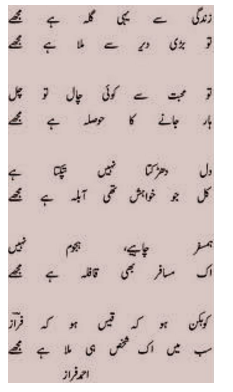 زندگی سے یہی گلہ ہے مجھے
تو بڑی دیر سے ملا ہے مجھے
تو محبت سے کوئی چال تو چل
ہار جانے کا حوصلہ ہے مجھے
دل دھڑکتا نہیں ٹپکتا ہے
کل جو خواہش تھی آبلہ ہے مجھے
ہمسفر چاہیے، ہجوم نہیں
اک مسافر بھی قافلہ ہے مجھے
کوہکن ہو کہ قیس ہو کہ فراز
سب میں اک شخص ہی ملا ہے مجھے
احمد فراز